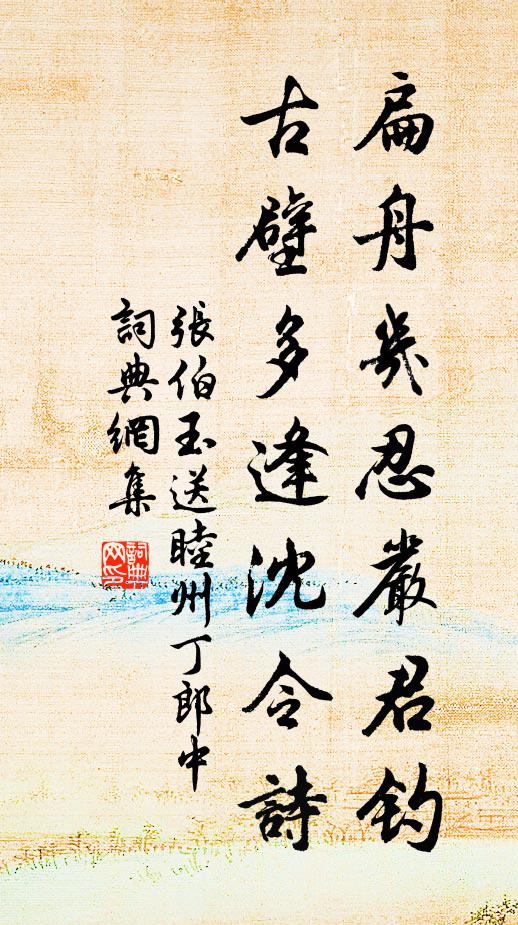 扁舟幾忍嚴君釣
古壁多逢沈令詩
張伯玉送睦州丁郎中
詞典網集
詞典
网印